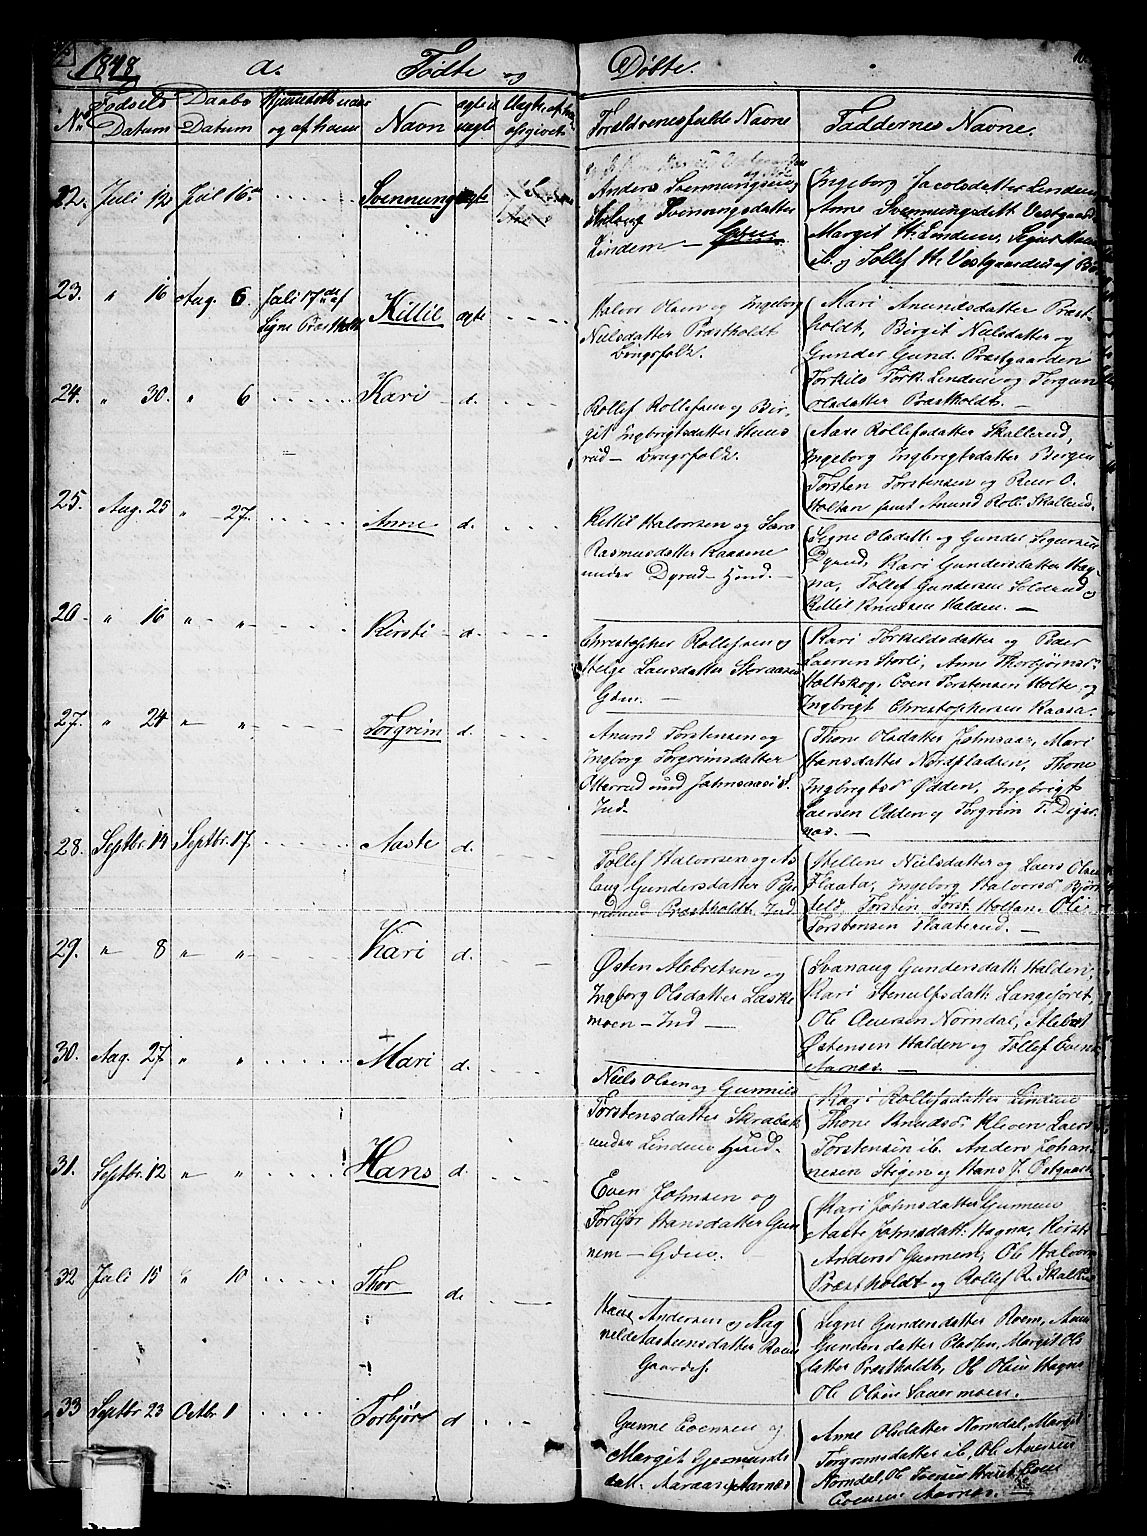 1848 a. Fødte og Døbte.
No Fødsels Datum Daabs Datum Hjemmedøbt naar og af hvem Navn ægte el uægte Forældrenes fulde Navne Faddernes Navne.
22. Juli 12 Jul 16 Svennung ægte
Anders Svennungsen og
Svennungsdatter
Lindem —
Ingeborg Jacobsdatter Lindem
Anne Svennungsdatt Vestgaard
Margit H. Lindem, Sigur
ib. og Tollef H. Vestgaarden af
23. " 16 Aug. 6. Juli 17de af Signe Præstholdt Kittil ægte
Halvor Olsen og Ingeborg
Nielsdatter Præstholdt
Brugsfolk.
Mari Anundsdatter Præst-
holdt, Birgit Nielsdatter og
Gunder Gund. Præstgaarden
Torkild Tork. Lindem og Torgun
Olsdatter Præstholdt. —
24. " 30. " 6 Kari d.
Rollef Rollefsen og Bir-
git Ingbrigtsdatter Stens
rud — Brugsfolk.
Aase Rollefsdatter Skallerud,
Ingeborg Ingbrigtsdatter Bergen
Torsten Torstensen og Reier O.
Holtan samt Anund Roll. Skallerud
25. Aug. 25 " 27. Anne d.
Kettil Halvorsen og Sara
Rasmusdatter Kaasene
under Dyrud — Huusmd. —
Signe Olsdatt. og Gundel Sigursen
Dyrud, Kari Gundersdatter Hag-
na, Tollef Gundersen Solerud og
Kettil Knudsen Halden. —
26 " 16 " " Kirsti d.
Christopher Rollefsen og
Helge Laersdatter Storaasen
Gdm. —
Kari Torkildsdatter og Peder
Laersen Storli, Anne Thorbjørns-
Holtskog, Even Torstensen Holte og
Ingbrigt Christophersen Kaasa.
27. " 24 " " Torgrim d.
Anund Torstensen og
Ingborg Torgrimsdatter
Otterud und Johnsaas
Ind.
Thone Olsdatter Johnsaas, Mari
Hansdatter Nordpladsen, Thone
Ingbrigtsd Odden, Ingbrigt
Laersen Odden og Torgrim T. Diger-
næs. —
28. Septbr. 14 Septbr. 17. Aaste d.
Tollef Halvorsen og As-
laug Gundersdatter
Præstholdt Ind
Hellene Nielsdatter og Laers Olsen
Flaata, Ingeborg Halvorsd Bjørn
Torsten Torst. Holtan. Ole
Torstensen Flaaterud. —
29. " 8 " " Kari d.
Østen Alebretsen og
Ingborg Olsdatter Laske
moen — Ind —
Svanaug Gundersdatt. Halden,
Kari Stenulfsdatt. Langejøret,
Ole Aversen Nørndal, Alebret
Østensen Halden og Tollef Evens
Aarnæs. —
30. Aug. 27 " " Mari d.
Niels Olsen og Gunnild
Torstensdatter Skrabak
under Lindem Huusmd.
Kari Rollefsdatter Lindem
Thone Knudsd Kleven Laers
Torstensen ib. Anders Johan-
nesen Stigen og Hans J. Østgaard
31. Septbr. 12 " " Hans d.
Even Johnsen og
Torbjør Hansdatter Gun
nem — Gdm.
Mari Johnsdatter Gunnem
Aaste Johnsdatt. Hagna, Kirsti
Andersd Gunnem, Ole Halvors
Præstholdt og Rollef R. Skallerud
32 Juli 15 " 10 Thor d.
Hans Andersen og Rag
nild Aastensdatter Roem
Gaardf.
Signe Gundersdatter Roem, Anne
Gundersdatter Pladsen, Margit Ols
datter Præstholdt, Ole Olsen Hagna
Ole Olsen Sauermoen.
33 Septbr. 23 Octbr. 1 Torbjørn d
Gunne Evensen og
Margit Gjermunds
datt. Aaraas Aarnæs
Anne Olsdatter Nørndal, Margit
Torgrimsdatter ib, Ole Aversen
Nørndal, Ole Svensen Huset, Even
Evensen Aarnæs.